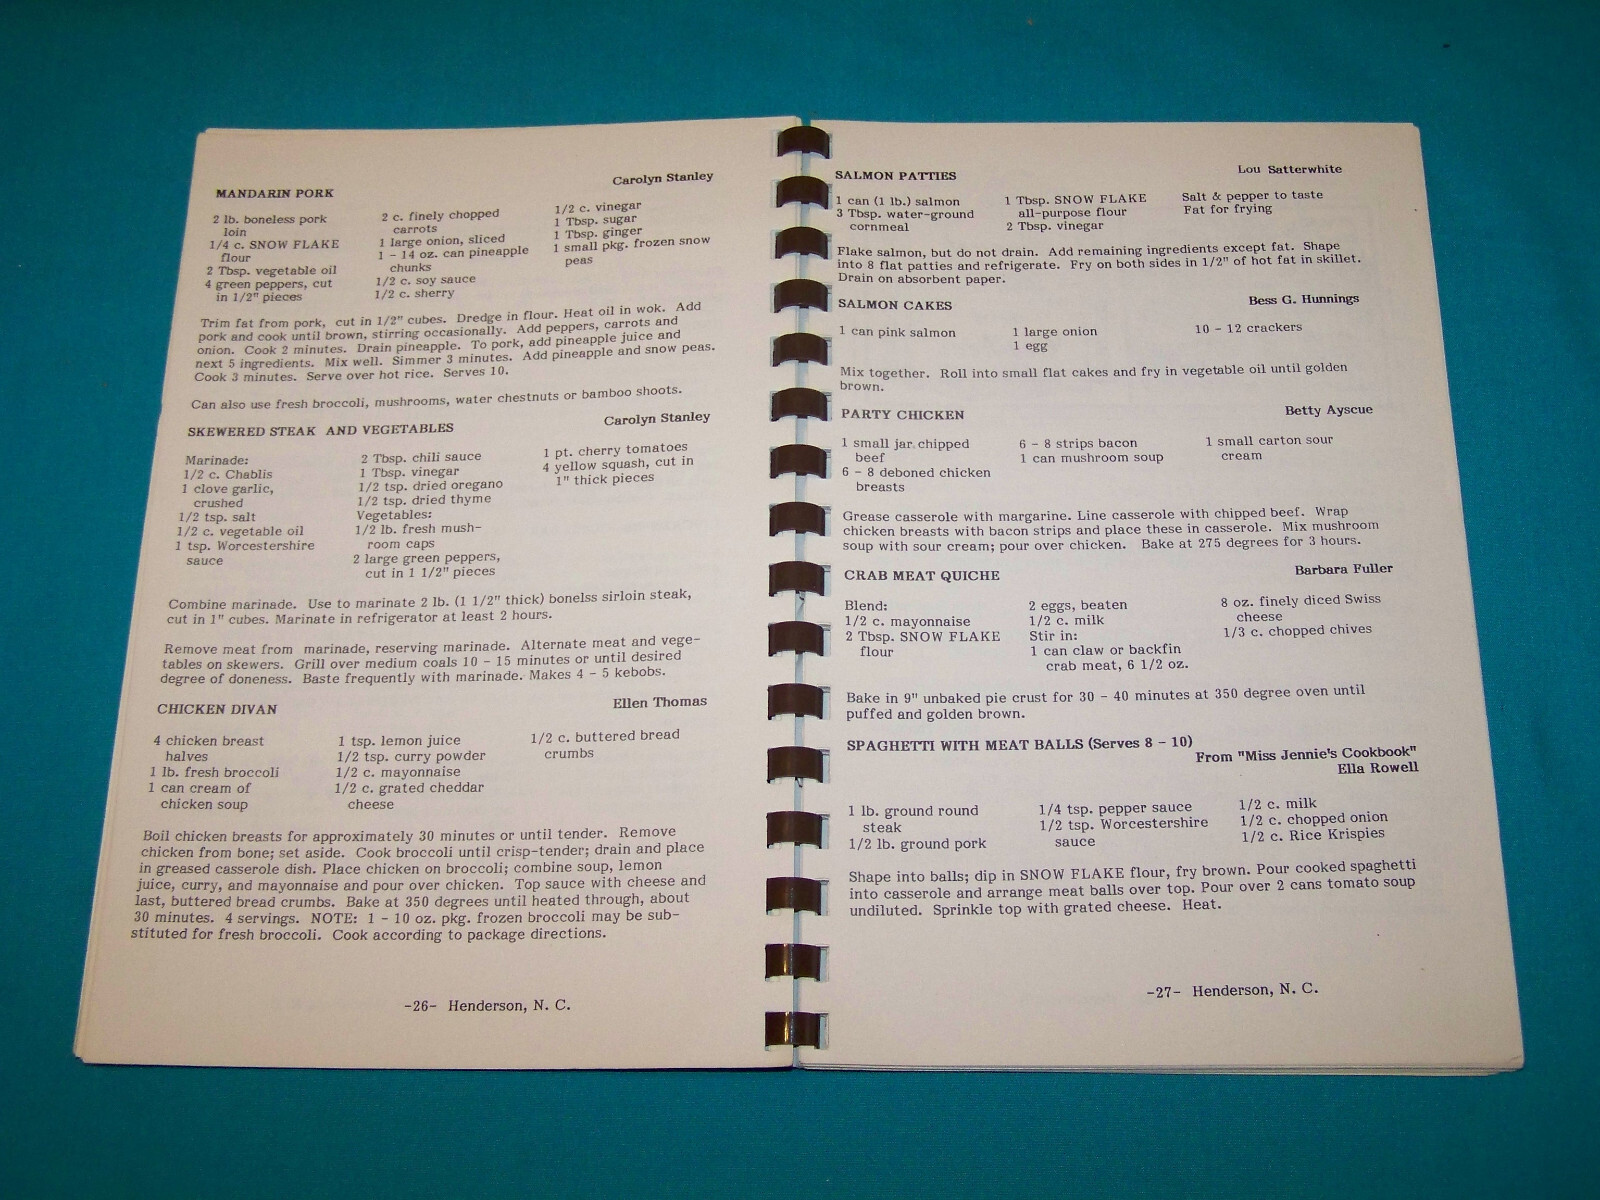 Carolyn Stanley
MANDARIN PORK
2 lb. boneless pork
loin
1/4 c. SNOW FLAKE
flour
2 Tbsp. vegetable oil
4 green peppers, cut
in 1/2" pieces
2 c. finely chopped
carrots
1 large onion, sliced
1 - 14 oz. can pineapple
chunks
1/2 c. soy sauce
1/2 c. sherry
1/2 c. vinegar
1 Tbsp. sugar
1 Tbsp. ginger
1 small pkg. frozen snow
peas
Trim fat from pork, cut in 1/2" cubes. Dredge in flour. Heat oil in wok. Add
pork and cook until brown, stirring occasionally. Add peppers, carrots and
onion. Cook 2 minutes. Drain pineapple. To pork, add pineapple juice and
next 5 ingredients. Mix well. Simmer 3 minutes. Add pineapple and snow peas.
Cook 3 minutes. Serve over hot rice. Serves 10.
Can also use fresh broccoli, mushrooms, water chestnuts or bamboo shoots.
Carolyn Stanley
SKEWERED STEAK AND VEGETABLES
Marinade:
1/2 c. Chablis
1 clove garlic,
crushed
1/2 tsp. salt
1/2 c. vegetable oil
1 tsp. Worcestershire
sauce
2 Tbsp. chili sauce
1 Tbsp. vinegar
1/2 tsp. dried oregano
1/2 tsp. dried thyme
Vegetables:
1/2 lb. fresh mush-
room caps
2 large green peppers,
cut in 1 1/2" pieces
1 pt. cherry tomatoes
4 yellow squash, cut in
1" thick pieces
Combine marinade. Use to marinate 2 lb. (1 1/2" thick) bonelss sirloin steak,
cut in 1" cubes. Marinate in refrigerator at least 2 hours.
Remove meat from marinade, reserving marinade. Alternate meat and vege-
tables on skewers. Grill over medium coals 10 - 15 minutes or until desired
degree of doneness. Baste frequently with marinade. Makes 4 - 5 kebobs.
Ellen Thomas
CHICKEN DIVAN
4 chicken breast
halves
1 lb. fresh broccoli
1 can cream of
chicken soup
1 tsp. lemon juice
1/2 tsp. curry powder
1/2 c. mayonnaise
1/2 c. grated cheddar
cheese
1/2 c. buttered bread
crumbs
Boil chicken breasts for approximately 30 minutes or until tender. Remove
chicken from bone; set aside. Cook broccoli until crisp-tender; drain and place
in greased casserole dish. Place chicken on broccoli; combine soup, lemon
juice, curry, and mayonnaise and pour over chicken. Top sauce with cheese and
last, buttered bread crumbs. Bake at 350 degrees until heated through, about
30 minutes. 4 servings. NOTE: 1 - 10 oz. pkg. frozen broccoli may be sub-
stituted for fresh broccoli. Cook according to package directions.
-26- Henderson, N. C.
Lou Satterwhite
SALMON PATTIES
1 can (1 lb.) salmon
3 Tbsp. water-ground
cornmeal
1 Tbsp. SNOW FLAKE
all-purpose flour
2 Tbsp. vinegar
Salt & pepper to taste
Fat for frying
Flake salmon, but do not drain. Add remaining ingredients except fat. Shape
into 8 flat patties and refrigerate. Fry on both sides in 1/2" of hot fat in skillet.
Drain on absorbent paper.
Bess G. Hunnings
SALMON CAKES
1 can pink salmon
1 large onion
1 egg
10 - 12 crackers
Mix together. Roll into small flat cakes and fry in vegetable oil until golden
brown.
Betty Ayscue
PARTY CHICKEN
1 small jar chipped
beef
6 - 8 deboned chicken
breasts
6 - 8 strips bacon
1 can mushroom soup
1 small carton sour
cream
Grease casserole with margarine. Line casserole with chipped beef. Wrap
chicken breasts with bacon strips and place these in casserole. Mix mushroom
soup with sour cream; pour over chicken. Bake at 275 degrees for 3 hours.
Barbara Fuller
CRAB MEAT QUICHE
Blend:
1/2 c. mayonnaise
2 Tbsp. SNOW FLAKE
flour
2 eggs, beaten
1/2 c. milk
Stir in:
1 can claw or backfin
crab meat, 6 1/2 oz.
8 oz. finely diced Swiss
cheese
1/3 c. chopped chives
Bake in 9" unbaked pie crust for 30 - 40 minutes at 350 degree oven until
puffed and golden brown.
SPAGHETTI WITH MEAT BALLS (Serves 8 - 10)
From "Miss Jennie's Cookbook"
Ella Rowell
1 lb. ground round
steak
1/2 lb. ground pork
1/4 tsp. pepper sauce
1/2 tsp. Worcestershire
sauce
1/2 c. milk
1/2 c. chopped onion
1/2 c. Rice Krispies
Shape into balls; dip in SNOW FLAKE flour, fry brown. Pour cooked spaghetti
into casserole and arrange meat balls over top. Pour over 2 cans tomato soup
undiluted. Sprinkle top with grated cheese. Heat.
-27- Henderson, N. C.